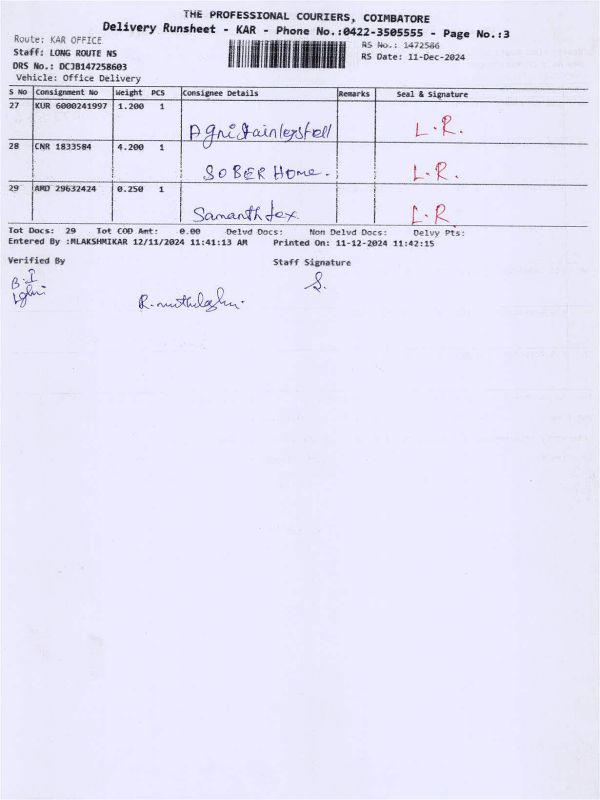 THE PROFESSIONAL COURIERS, COIMBATORE
Delivery Runsheet - KAR - Phone No.:0422-3505555 - Page No.:3
Route: KAR OFFICE
RS No.: 1472586
Staff: LONG ROUTE NS
RS Date: 11-Dec-2024
DRS No.: DCJB147258603
Vehicle: Office Delivery
S No Consignment No Weight PCS Consignee Details Remarks Seal & Signature
27 KUR 6000241997 1.200 1
Agnistainlersteell L.R.
28 CNR 1833584 4.200 1
SOBER Home. L.R.
29 AMD 29632424 0.250 1
Samanth tex. L.R
Tot Docs: 29 Tot COD Amt: 0.00 Delvd Docs: Non Delvd Docs: Delvy Pts:
Entered By :MLAKSHMIKAR 12/11/2024 11:41:13 AM Printed On: 11-12-2024 11:42:15
Verified By Staff Signature
B.I
S.